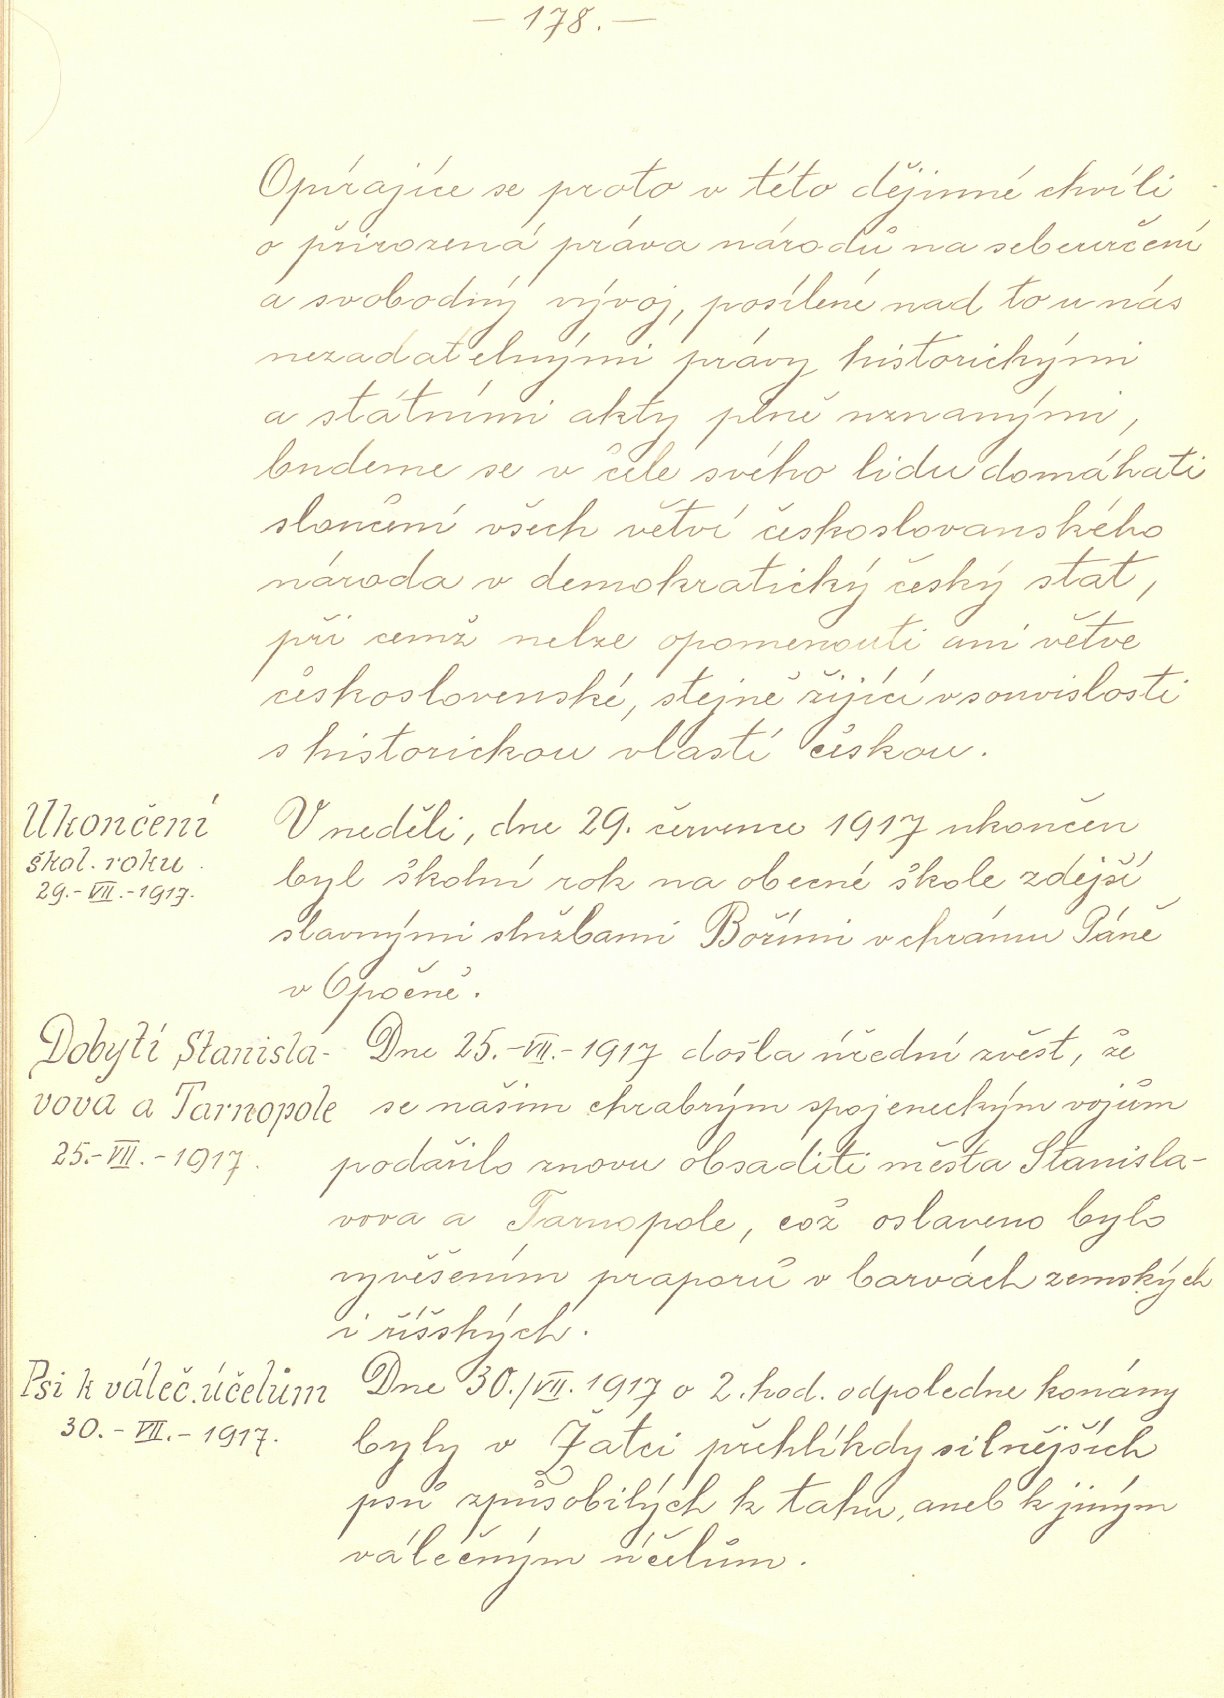 — 178. —
Opírajíce se proto v této dějinné chvíli
o přirozená práva národů na seberurčení
a svobodný vývoj, posílené nad to u nás
nezadatelnými právy historickými
a státními akty plně uznanými,
budeme se v čele svého lidu domáhati
sloučení všech větví českoslovanského
národa v demokratický český stat,
při cemž nelze opomenouti ani větve
československé, stejně žijící v souvislosti
s historickou vlastí českou.
Ukončení
škol. roku
29.-VII.-1917.
V neděli, dne 29. července 1917 ukončen
byl školní rok na obecné škole zdejší
slavnými službami Božími v chrámu Páně
v Opočně.
Dobytí Stanisla-
vova a Tarnopole
25.-VII.-1917.
Dne 25.-VII.-1917 došla úřední zvěst, že
se našim chrabrým spojeneckým vojům
podařilo znovu obsaditi města Stanisla-
vova a Tarnopole, což oslaveno bylo
vyvěšením praporů v barvách zemských
i říšských.
Psi k váleč. účelům
30.-VII.-1917.
Dne 30./VII. 1917 o 2. hod. odpoledne konány
byly v Žatci přehlíkdy silnějších
psů způsobilých k tahu, aneb k jiným
válečným účelům.